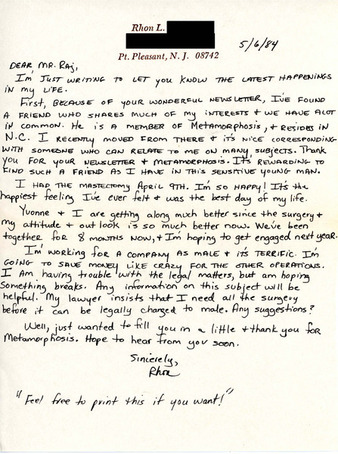 Rhon L.
Pt. Pleasant, N. J. 08742
5/6/84
DEAR MR. RAJ,
I'M JUST WRITING TO LET YOU KNOW THE LATEST HAPPENINGS
IN MY LIFE.
FIRST, BECAUSE OF YOUR WONDERFUL NEWSLETTER, I'VE FOUND
A FRIEND WHO SHARES MUCH OF MY INTERESTS & WE HAVE ALOT
IN COMMON. HE IS A MEMBER OF METAMORPHOSIS, & RESIDES IN
N.C. I RECENTLY MOVED FROM THERE & IT'S NICE CORRESPONDING
WITH SOMEONE WHO CAN RELATE TO ME ON MANY SUBJECTS. THANK
YOU FOR YOUR NEWSLETTER & METAMORPHOSIS. IT'S REWARDING TO
FIND SUCH A FRIEND AS I HAVE IN THIS SENSITIVE YOUNG MAN.
I HAD THE MASTECTOMY APRIL 9TH. I'M SO HAPPY! IT'S THE
happiest feeling I've ever felt & was the best day of my life.
Yvonne & I are getting along much better since the surgery &
my attitude & out look is so much better now. We've been
together for 8 months now, & I'm hoping to get engaged next year.
I'm working for a company as male & it's terrific. I'm
going to save money like crazy for the other operations.
I am having trouble with the legal matters, but am hoping
something breaks. Any information on this subject will be
helpful. My lawyer insists that I need all the surgery
before it can be legally changed to male. Any suggestions?
Well, just wanted to fill you in a little & thank you for
Metamorphosis. Hope to hear from you soon.
Sincerely,
Rhon
"Feel free to print this if you want!"